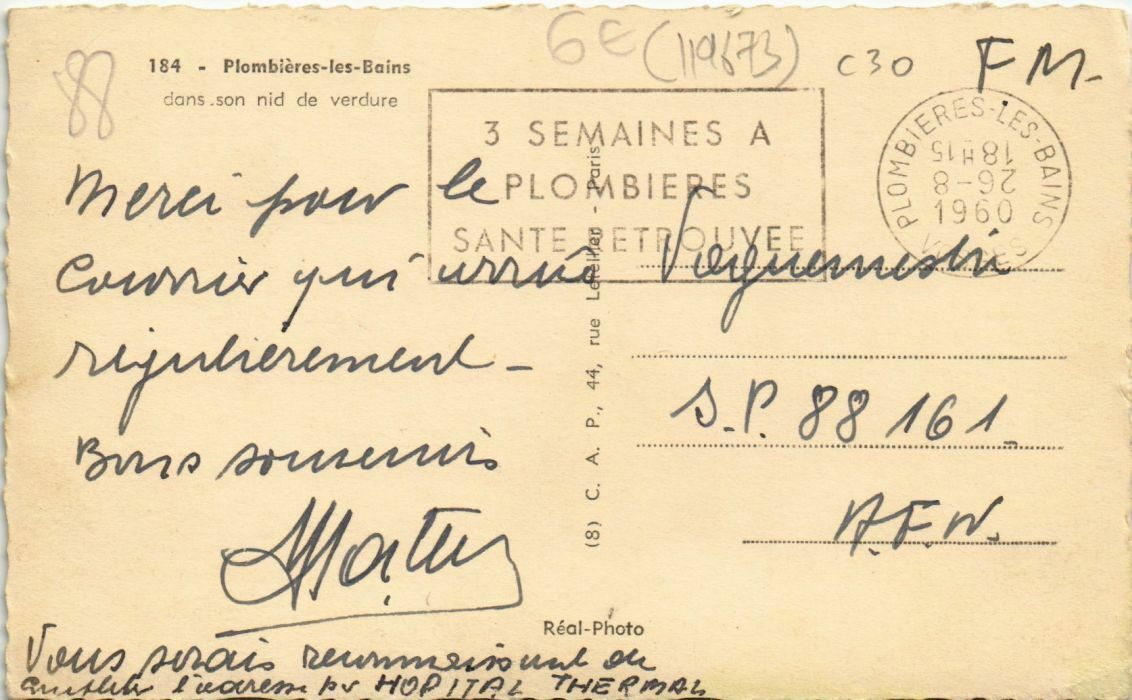 88
6E (119673) C30 F M.
184 - Plombières-les-Bains
dans son nid de verdure
3 SEMAINES A
PLOMBIERES
SANTE RETROUVEE
PLOMBIERES-LES-BAINS
18H15
26-8
1960
VOSGES
Merci pour le
Courrier qui arrive
régulièrement -
Bons souvenirs
Vous serais reconnaissant de
l'adresse pr HOPITAL THERMAL
(8) C. A. P., 44, rue Letellier - Paris
Réal-Photo
Vaguemestre
S.P. 88 161.
A.F.N.